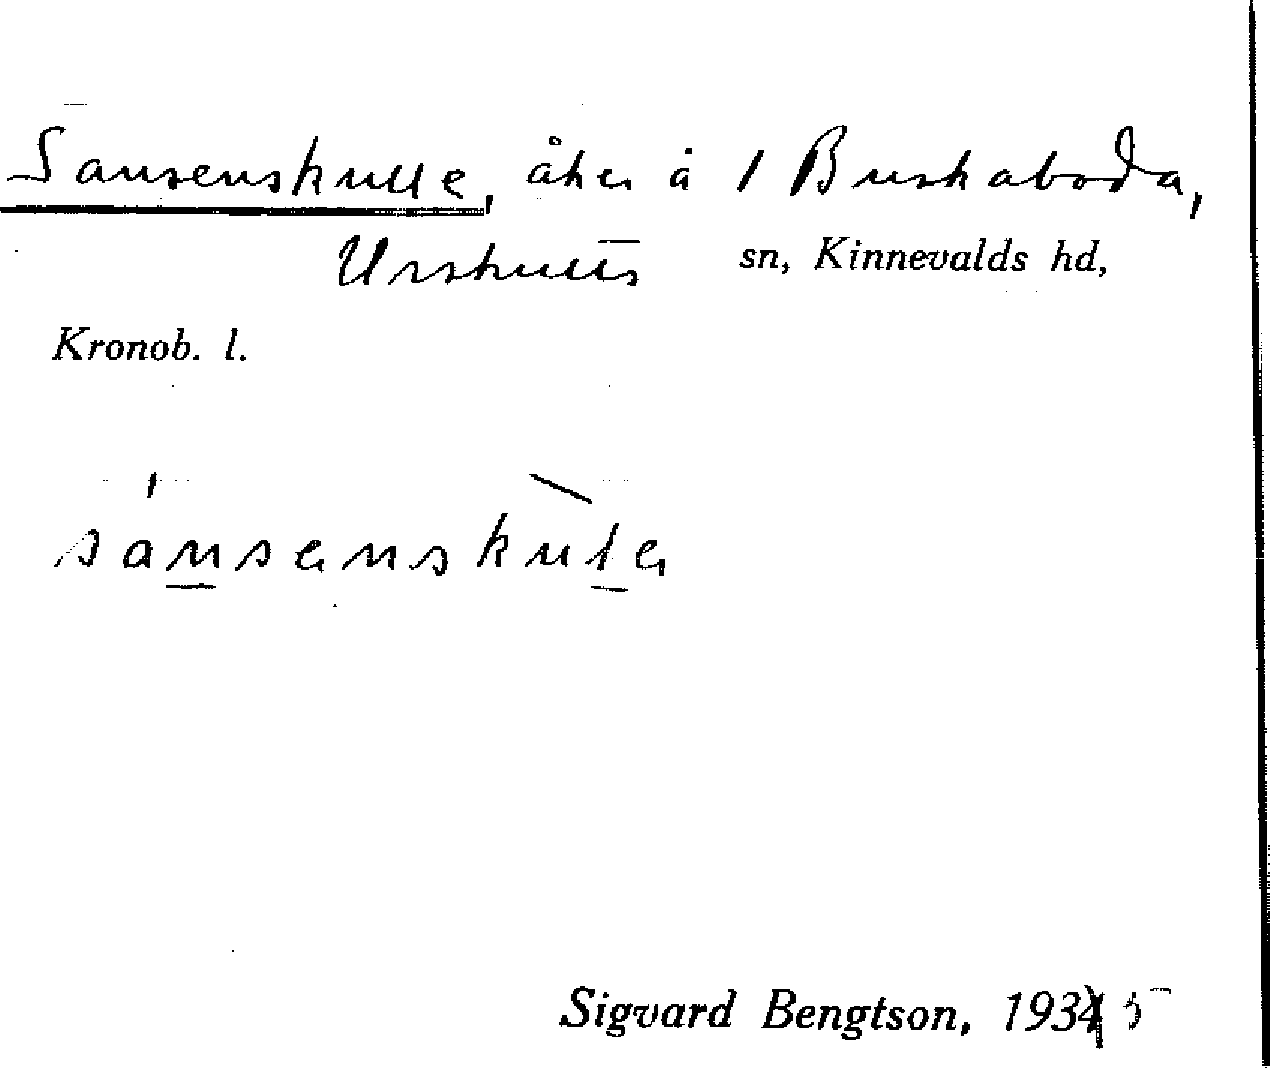 Sansenskulle, åker å 1 Buskaboda,
Urshults sn, Kinnevalds hd,
Kronob. l.
sansenskula
Sigvard Bengtson, 1935